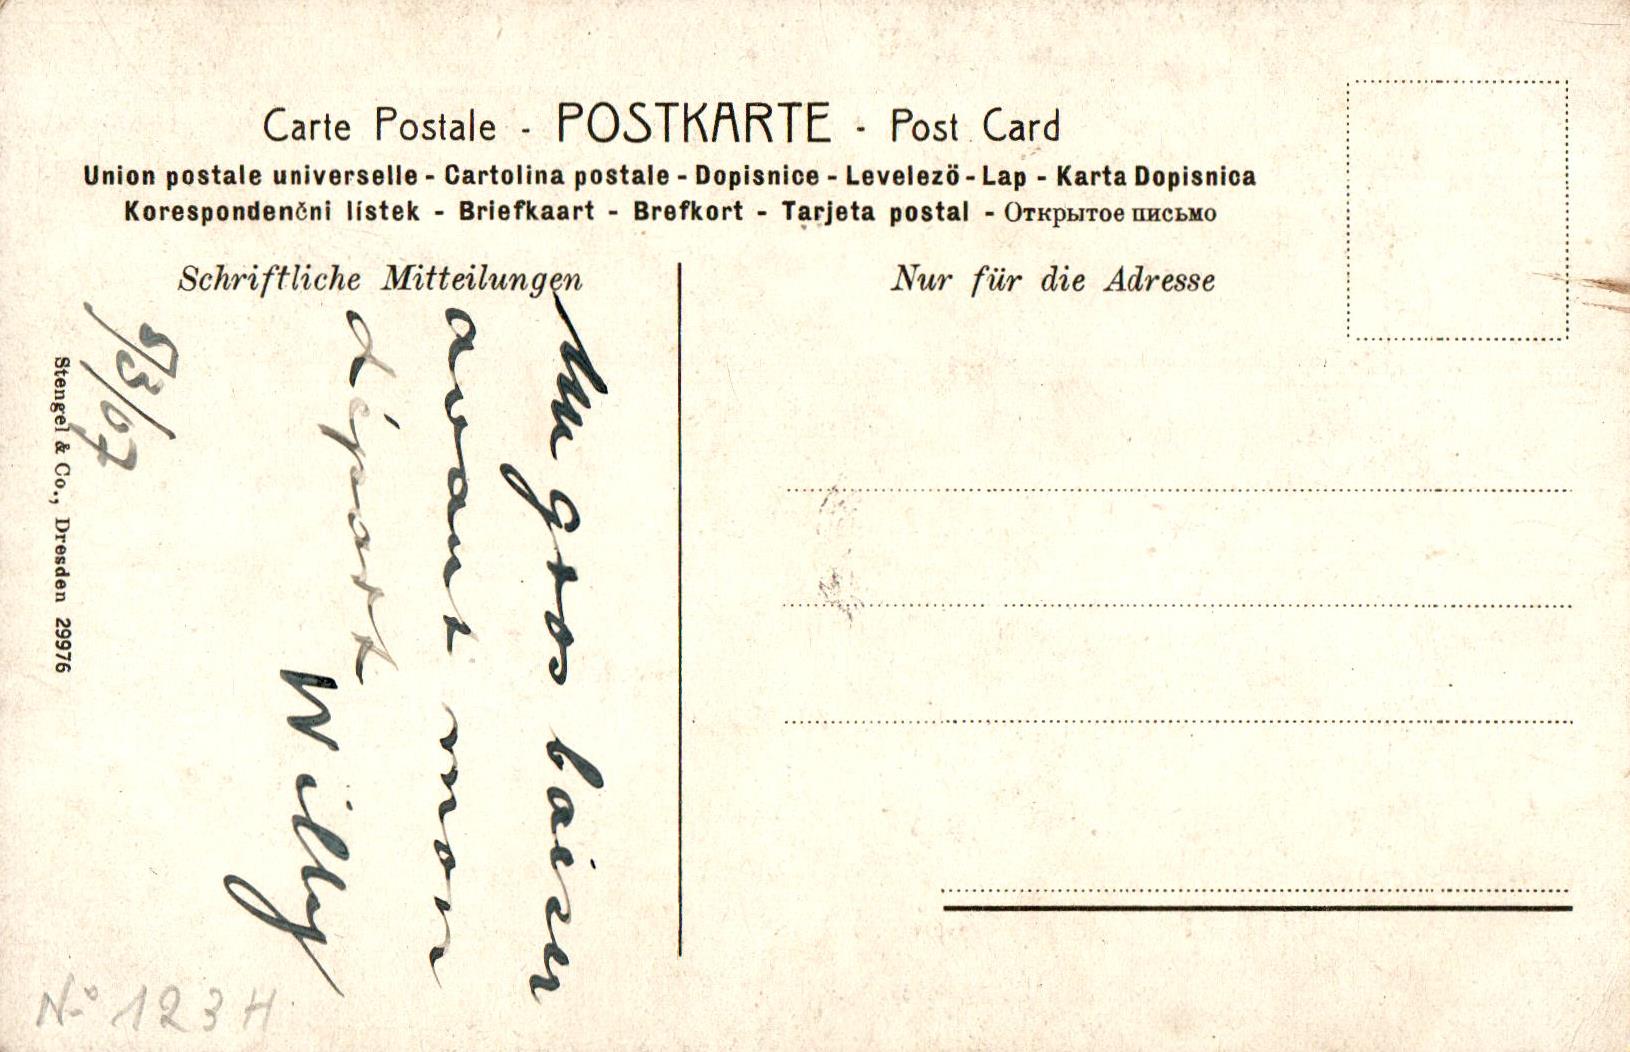 Carte Postale - POSTKARTE - Post Card
Union postale universelle - Cartolina postale - Dopisnice - Levelezö-Lap - Karta Dopisnica
Korespondenčni lístek - Briefkaart - Brefkort - Tarjeta postal - Открытое письмо
Schriftliche Mitteilungen
Nur für die Adresse
Un gros baiser
avant mon
départ
Willy
5/3/07
Stengel & Co., Dresden 29976
No 123H